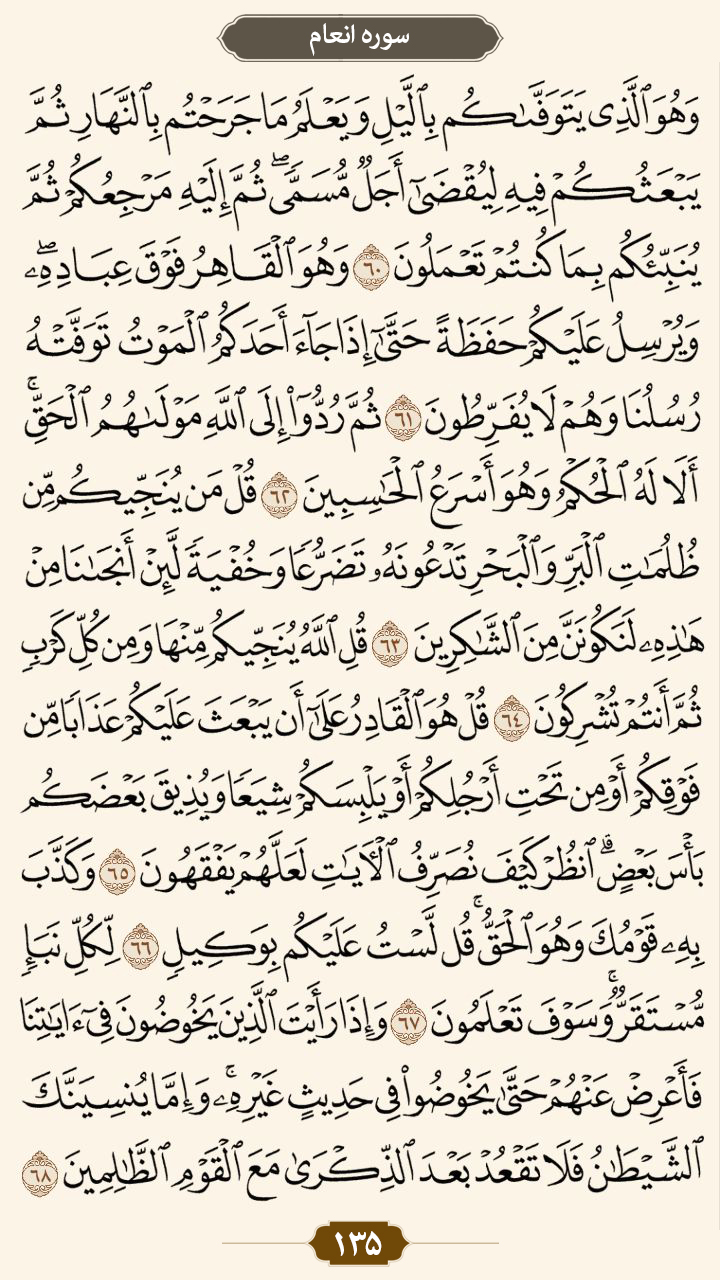 سوره انعام
وَهُوَ ٱلَّذِى يَتَوَفَّىٰكُم بِٱلَّيْلِ وَيَعْلَمُ مَا جَرَحْتُم بِٱلنَّهَارِ ثُمَّ
يَبْعَثُكُمْ فِيهِ لِيُقْضَىٰٓ أَجَلٌ مُّسَمًّى ۖ ثُمَّ إِلَيْهِ مَرْجِعُكُمْ ثُمَّ
يُنَبِّئُكُم بِمَا كُنتُمْ تَعْمَلُونَ ٦٠ وَهُوَ ٱلْقَاهِرُ فَوْقَ عِبَادِهِۦ ۖ
وَيُرْسِلُ عَلَيْكُمْ حَفَظَةً حَتَّىٰٓ إِذَا جَآءَ أَحَدَكُمُ ٱلْمَوْتُ تَوَفَّتْهُ
رُسُلُنَا وَهُمْ لَا يُفَرِّطُونَ ٦١ ثُمَّ رُدُّوٓا۟ إِلَى ٱللَّهِ مَوْلَىٰهُمُ ٱلْحَقِّ ۚ
أَلَا لَهُ ٱلْحُكْمُ وَهُوَ أَسْرَعُ ٱلْحَـٰسِبِينَ ٦٢ قُلْ مَن يُنَجِّيكُم مِّن
ظُلُمَـٰتِ ٱلْبَرِّ وَٱلْبَحْرِ تَدْعُونَهُۥ تَضَرُّعًا وَخُفْيَةً لَّئِنْ أَنجَىٰنَا مِنْ
هَـٰذِهِۦ لَنَكُونَنَّ مِنَ ٱلشَّـٰكِرِينَ ٦٣ قُلِ ٱللَّهُ يُنَجِّيكُم مِّنْهَا وَمِن كُلِّ كَرْبٍ
ثُمَّ أَنتُمْ تُشْرِكُونَ ٦٤ قُلْ هُوَ ٱلْقَادِرُ عَلَىٰٓ أَن يَبْعَثَ عَلَيْكُمْ عَذَابًا مِّن
فَوْقِكُمْ أَوْ مِن تَحْتِ أَرْجُلِكُمْ أَوْ يَلْبِسَكُمْ شِيَعًا وَيُذِيقَ بَعْضَكُم
بَأْسَ بَعْضٍ ۗ ٱنظُرْ كَيْفَ نُصَرِّفُ ٱلْـَٔايَـٰتِ لَعَلَّهُمْ يَفْقَهُونَ ٦٥ وَكَذَّبَ
بِهِۦ قَوْمُكَ وَهُوَ ٱلْحَقُّ ۚ قُل لَّسْتُ عَلَيْكُم بِوَكِيلٍ ٦٦ لِّكُلِّ نَبَإٍ
مُّسْتَقَرٌّ ۚ وَسَوْفَ تَعْلَمُونَ ٦٧ وَإِذَا رَأَيْتَ ٱلَّذِينَ يَخُوضُونَ فِىٓ ءَايَـٰتِنَا
فَأَعْرِضْ عَنْهُمْ حَتَّىٰ يَخُوضُوا۟ فِى حَدِيثٍ غَيْرِهِۦ ۚ وَإِمَّا يُنسِيَنَّكَ
ٱلشَّيْطَـٰنُ فَلَا تَقْعُدْ بَعْدَ ٱلذِّكْرَىٰ مَعَ ٱلْقَوْمِ ٱلظَّـٰلِمِينَ ٦٨
۱۳۵